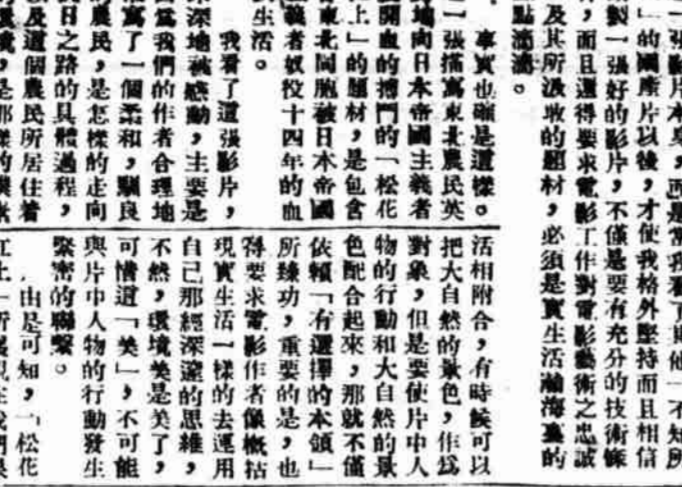 一張影片本身，而是當我看了其他「不知所
」的國產片以後，才使我格外堅持而且相信
製一張好的影片，不僅是要有充分的技術條
，而且還得要求電影工作對電影藝術之忠誠
及其所汲取的題材，必須是實生活瀚海裏的
點滴滴。
事實也確是這樣。
一張描寫東北農民英
地向日本帝國主義者
開血的搏鬥的「松花
上」的題材，是包含
東北同胞被日本帝國
義者奴役十四年的血
生活。
我看了這張影片，
深地被感動，主要是
爲我們的作者合理地
寫了一個柔和，馴良
農民，是怎樣的走向
日之路的具體過程，
及這個農民所居住着
境，是那樣的
活相附合，有時候可以
把大自然的景色，作爲
對象，但是要使片中人
物的行動和大自然的景
色配合起來，那就不僅
依賴「有選擇的本領」
所臻功，重要的是，也
得要求電影作者像概括
現實生活一樣的去運用
自己那經深邃的思維，
不然，環境美是美了，
可惜這「美」，不可能
與片中人物的行動發生
緊密的聯繫。
由是可知，「松花
江上」所展現在我們